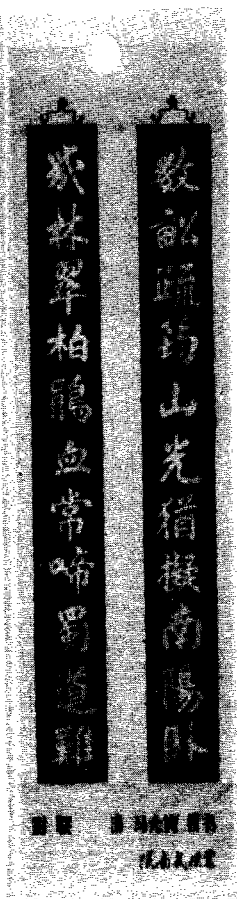 數畝疏筠山光猶擬南陽卧
幾林翠柏鵑血常啼蜀道難